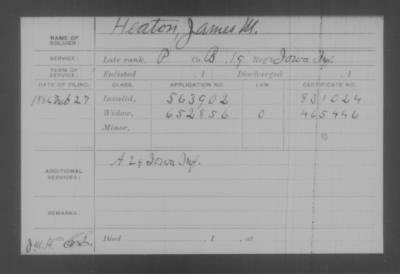 NAME OF SOLDIER: Heaton, James M.
SERVICE: Late rank, P Co. B, 19 Reg't Iowa Inf.
TERM OF SERVICE: Enlisted , 1 Discharged , 1
DATE OF FILING. CLASS. APPLICATION NO. LAW. CERTIFICATE NO.
1886 Feb 27 Invalid, 563902 831024
Widow, 652856 O 465446
Minor,
ADDITIONAL SERVICES: A 29 Iowa Inf.
REMARKS:
J.M.H.
Died , 1 , at